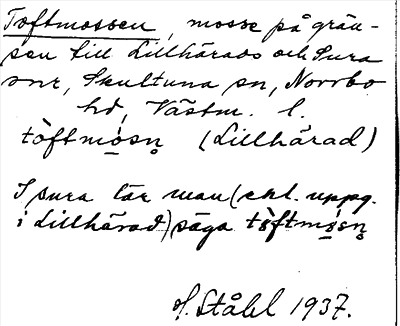 Toftmossen, mosse på grän-
sen till Lillhärads och Sura
snr, Skultuna sn, Norrbo
hd, Västm. l.
tòftmo̱sn̥ (Lillhärad)
I Sura lär man (enl. uppg.
i Lillhärad) säga tòftmo̱sn̥
H. Ståhl 1937.